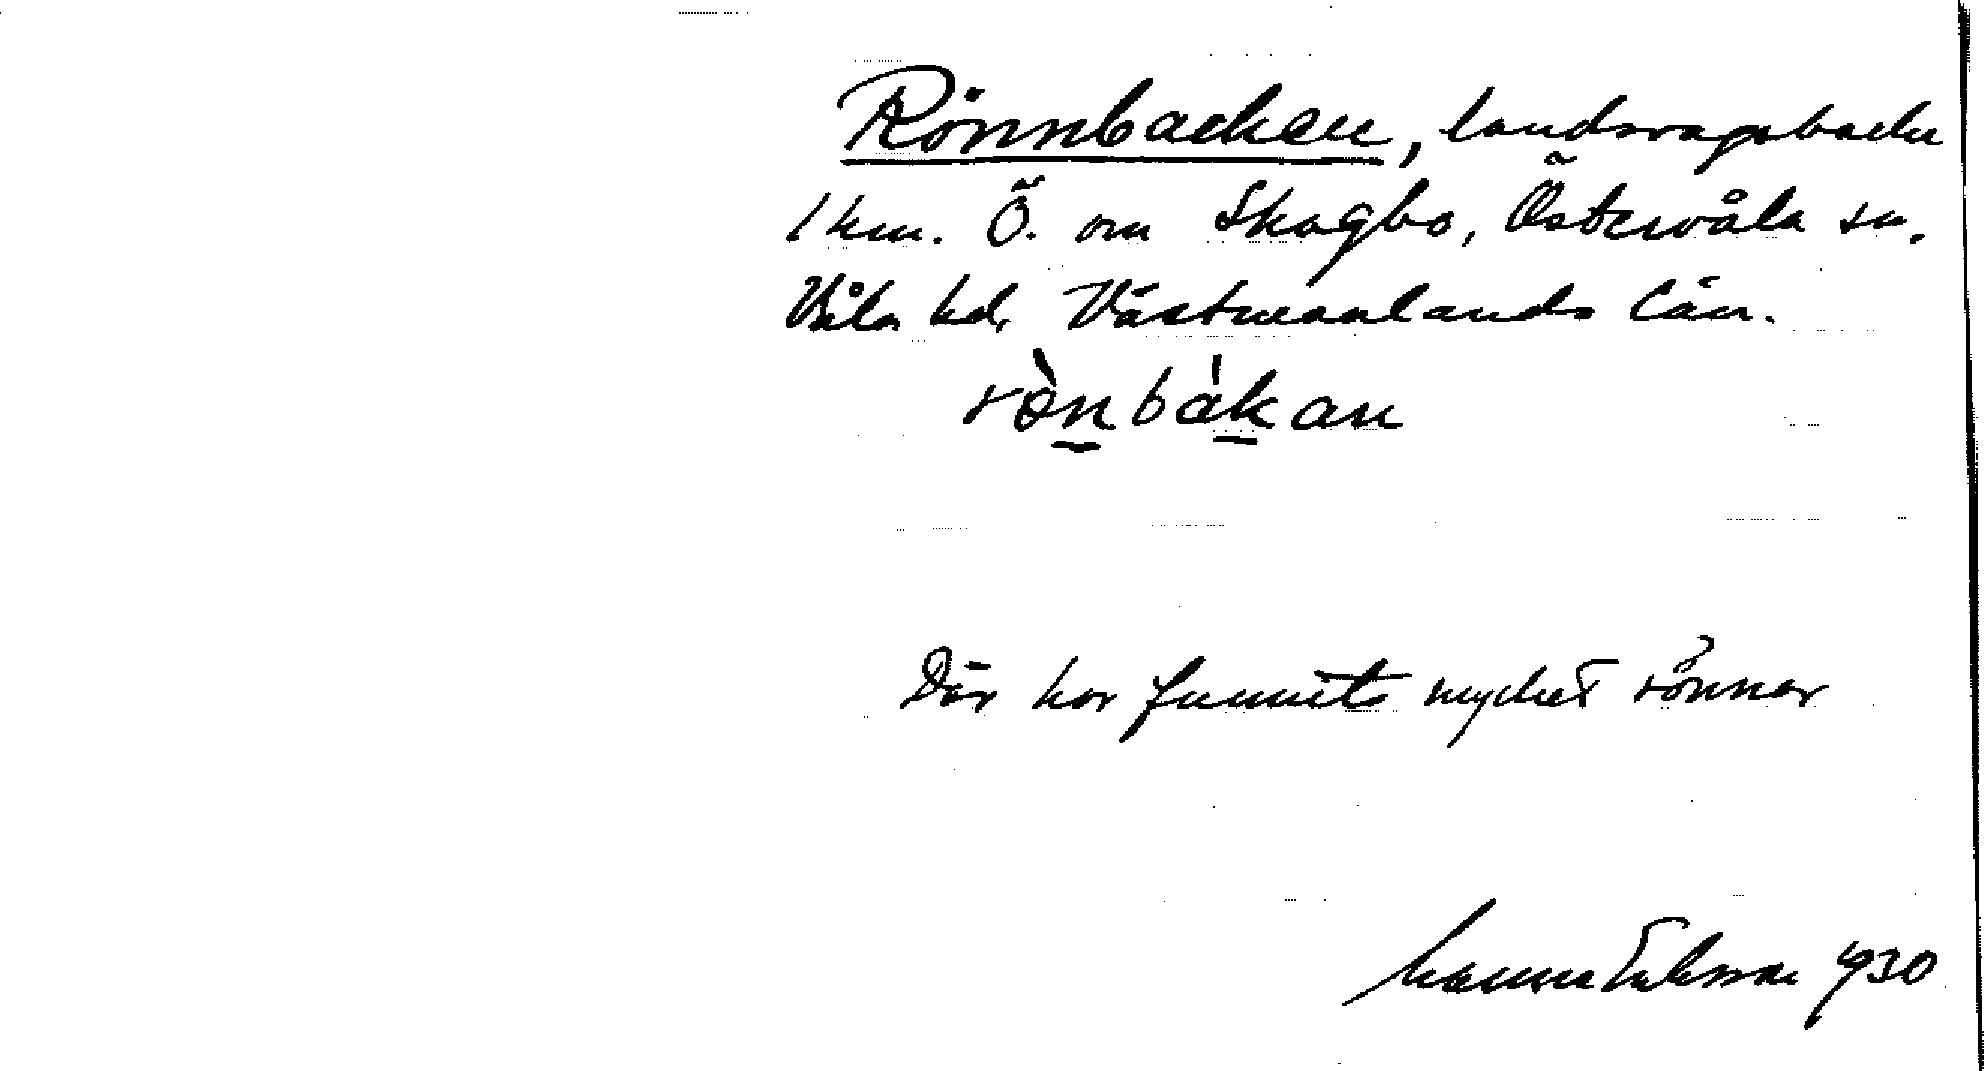 Rönnbacken, landsvägsbacke
1 km. Ö. om Skogbo, Östervåla sn.
Våla hd, Västmanlands län.
rö̀nbàkan
Där har funnits mycket rönnar
Manne Eriksson 1930